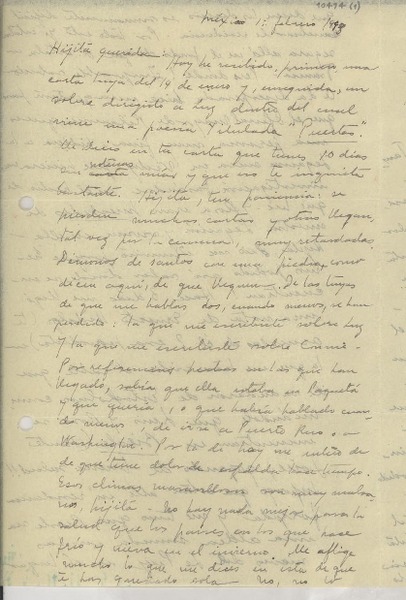 10474 (1)
México 1º febrero /1943
Hijita querida: Hoy he recibido, primero una
carta tuya del 14 de enero y, enseguida, un
sobre dirigido a Luz dentro del cual
viene una poema titulada "Puertos."
Me dices en tu carta que tienes 10 días
sin noticias mías y que eso te inquieta
bastante. Hijita, ten paciencia: se
pierden muchas cartas y otras llegan,
tal vez por la censura, muy retardadas.
Démonos de santos con una piedra, como
dicen aquí, de que llegan. De las tuyas
de que me hablas dos, cuando menos, se han
perdido: la que me escribiste sobre Luz
y la que me escribiste sobre Connie.
Por referencias hechas en las que han
llegado, sabía que ella estaba en Paquetá
y que quería, o que había hablado cuan
do menos, de irse a Puerto Rico o a
Washington. Por la de hoy me entero de
de que tiene dolor de espalda hace tiempo.
Esos climas maravillosos son muy malsa
nos, hijita. No hay nada mejor para la
salud que los países en los que hace
frío y nieva en el invierno. Me aflige
mucho lo que me dices en esta de que
te has quedado sola. No, no lo